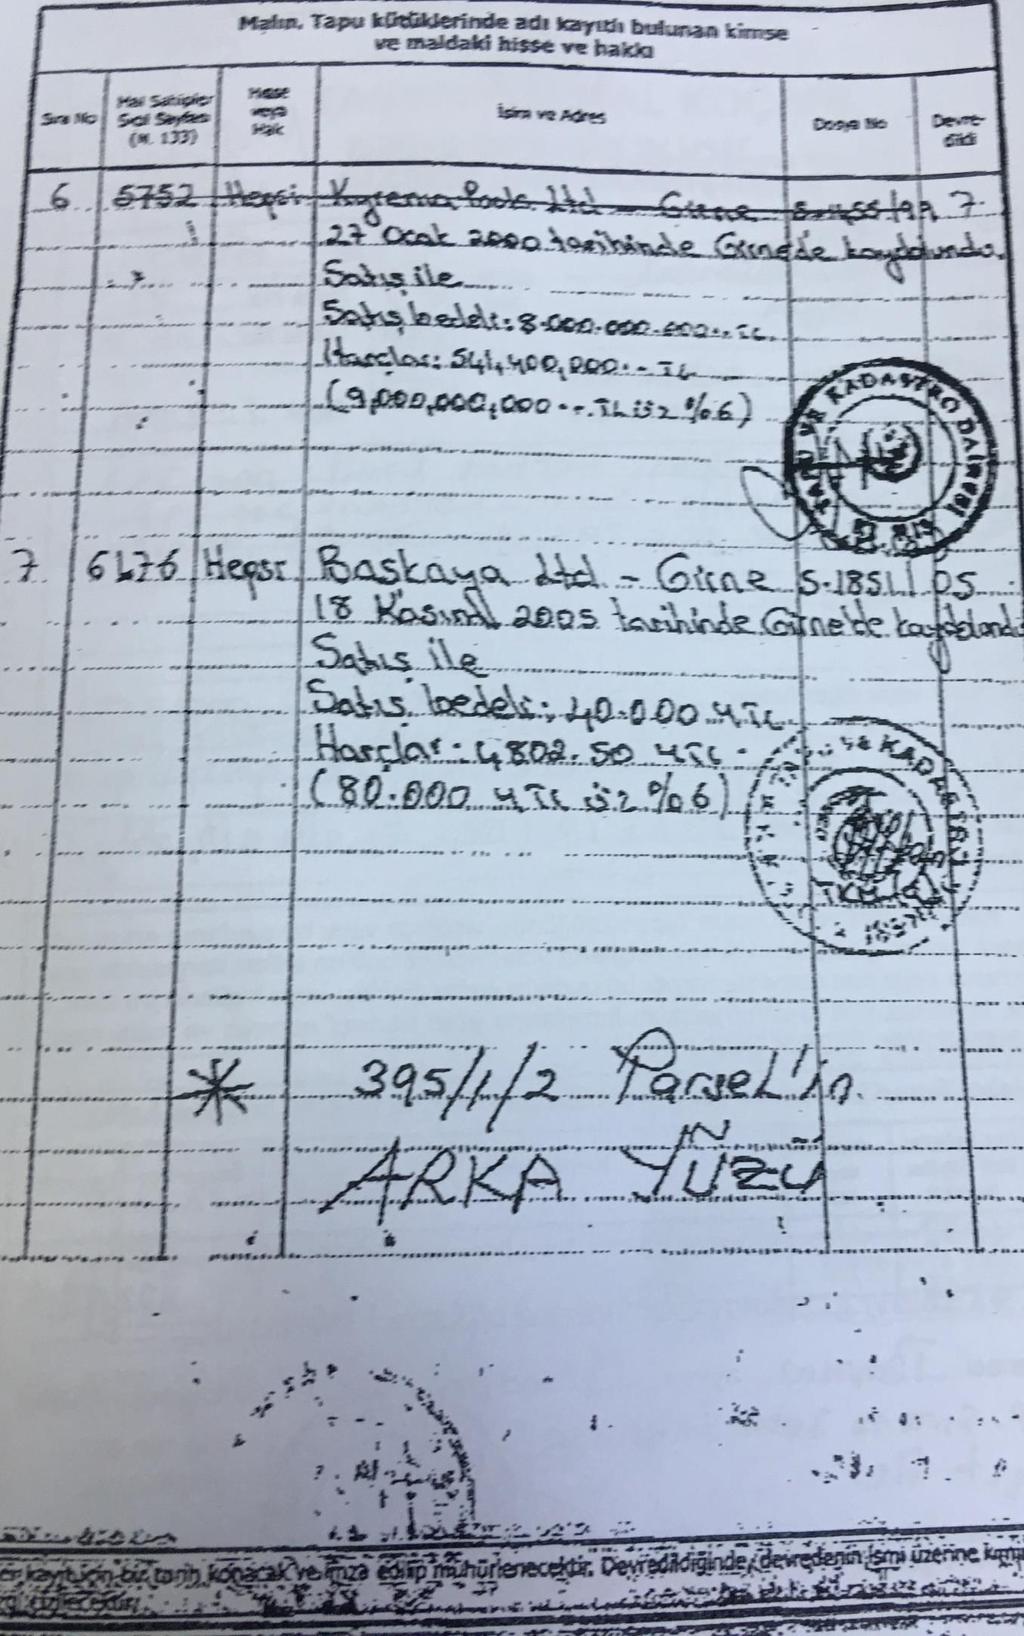 Malın, Tapu kütüklerinde adı kayıtlı bulunan kimse
ve maldaki hisse ve hakkı
Sıra No
Mal Sahipler Sicil Sayfası (M. 133)
Hisse veya Hak
İsim ve Adres
Dosya No
Devredildi
6 5752 Hepsi Kyrema Pools Ltd - Girne S.455/99 7
27 Ocak 2000 tarihinde Girne'de kaydolundu.
Satış ile
Satış bedeli: 8.000.000.000.-TL
Harçlar: 541,400,000.-TL
(9,000,000,000.-TL üz %6)
TAPU VE KADASTRO DAİRESİ
7 6476 Hepsi Baskaya Ltd - Girne S.1851/05
18 Kasım 2005 tarihinde Girne'de kaydolundu
Satış ile
Satış bedeli: 40.000 YTL
Harçlar: 4,802.50 YTL
(80.000 YTL üz %6)
395/1/2 Parsel'in
ARKA YÜZÜ
kayıt için bir tarih konacak ve imza edilip mühürlenecektir. Devredildiğinde, devredenin ismi üzerine
çizilecektir.